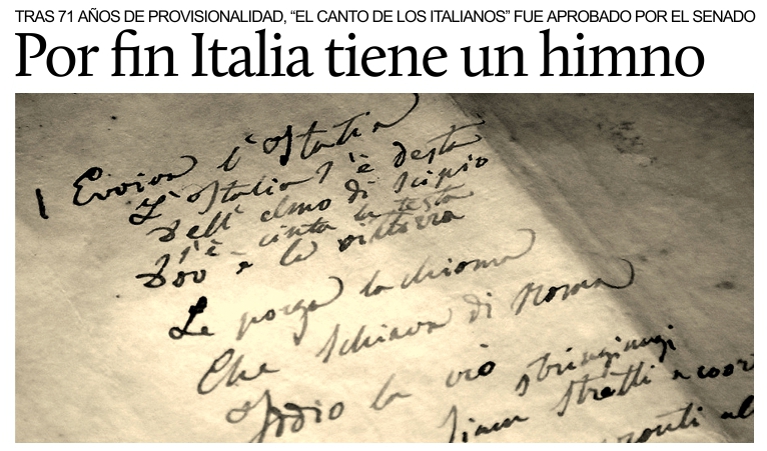 TRAS 71 AÑOS DE PROVISIONALIDAD, “EL CANTO DE LOS ITALIANOS” FUE APROBADO POR EL SENADO
Por fin Italia tiene un himno
Evviva l'Italia
L'Italia s'è desta
Dell' elmo di Scipio
S'è cinta la testa
Dov'è la vittoria
Le porga la chioma
Che schiava di Roma
Iddio la creò
Siam stretti a coor
pronti al